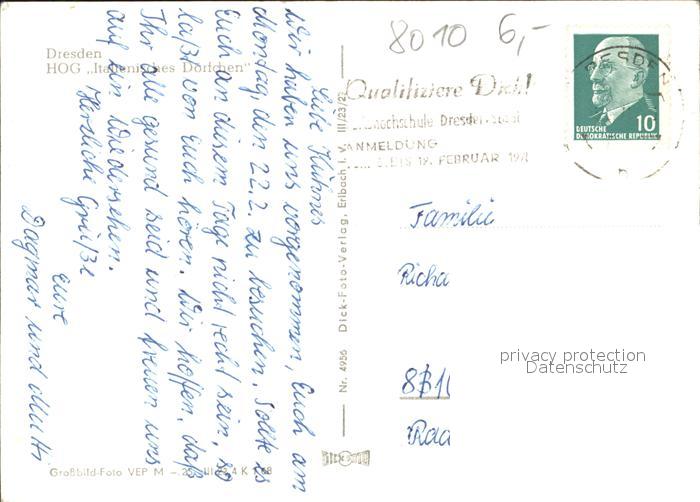 8010 6,-
Dresden
HOG „Italienisches Dörfchen"
Liebe Kühnes
Wir haben uns vorgenommen, Euch am
Montag, den 22.2. zu besuchen. Sollte es
Euch an diesem Tage nicht recht sein, so
laßt von Euch hören. Wir hoffen, daß
Ihr alle gesund seid und freuen uns
auf ein Wiedersehen.
Herzliche Grüße
Eure
Dagmar und Mutti
Großbild-Foto VEP M
Nr. 4956 Dick-Foto-Verlag, Erlbach i. V. III/23/2
Qualifiziere Dich!
hochschule Dresden
ANMELDUNG
BIS 19. FEBRUAR
DRESDEN
DEUTSCHE
DEMOKRATISCHE REPUBLIK
10
Familie
Richa
Raa
privacy protection
Datenschutz